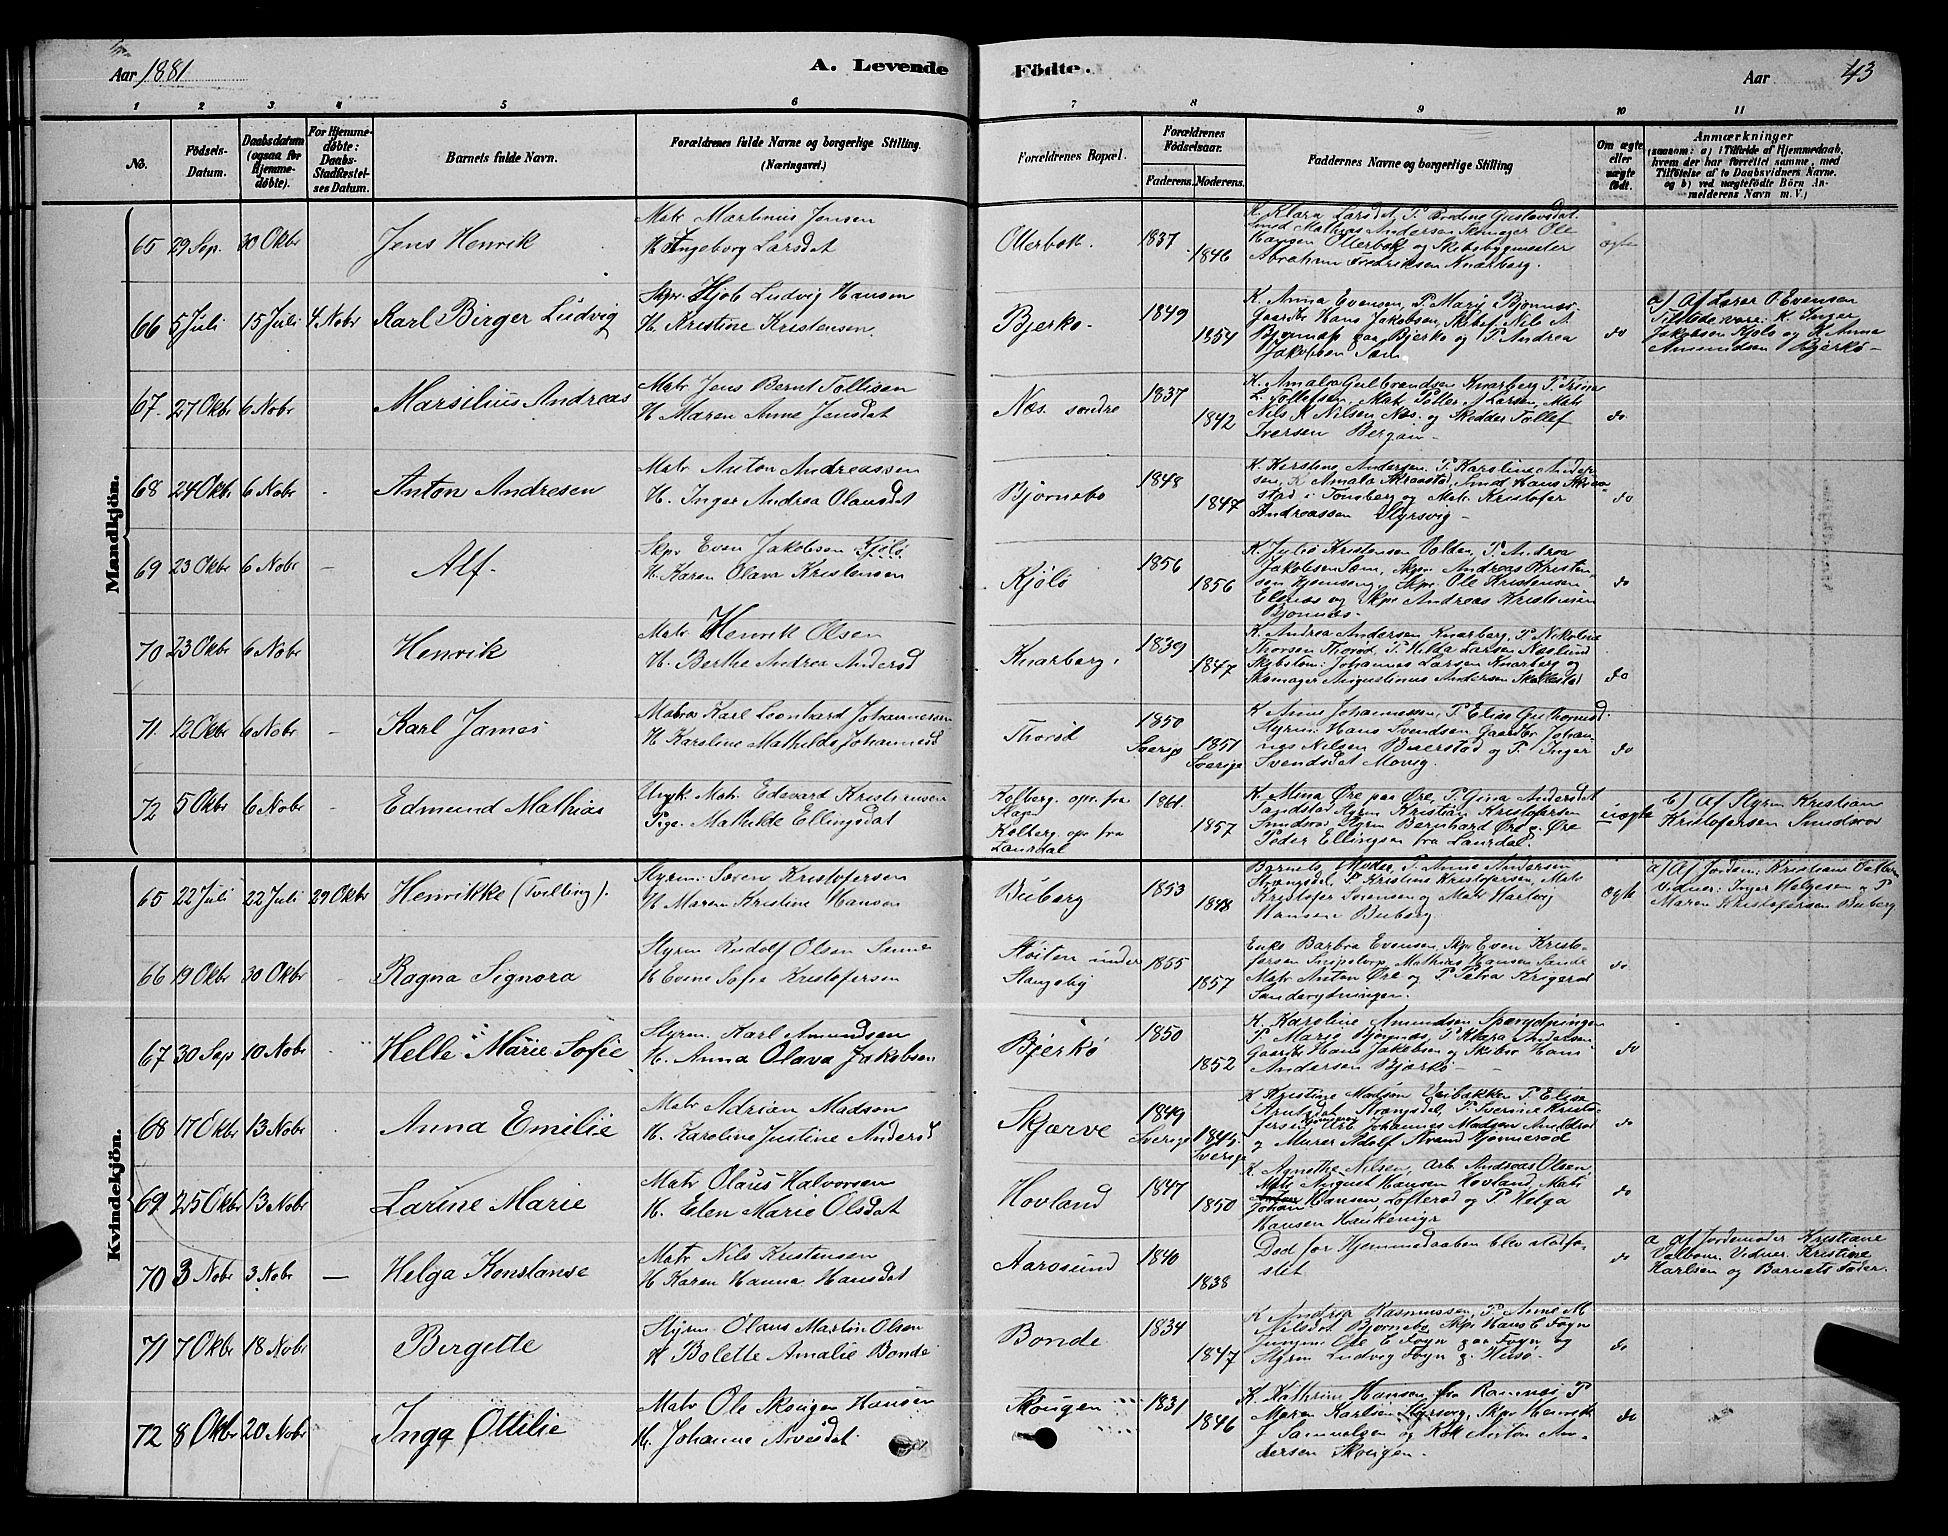 Aar 1881
A. Levende Födte.
Aar 43
1 2 3 4 5 6 7 8 9 10 11
No.
Födsels-Datum.
Daabsdatum (ogsaa for Hjemmedöbte).
For Hjemmedöbte: Daabs-Stadfæstelses Datum.
Barnets fulde Navn.
Forældrenes fulde Navne og borgerlige Stilling. (Næringsvei.)
Forældrenes Bopæl.
Forældrenes Födselsaar.
Faderens. Moderens.
Faddernes Navne og borgerlige Stilling
Om ægte eller uægte födt.
Anmærkninger
(saasom: a) i Tilfælde af Hjemmedaab, hvem der har forrettet samme, med Tilföielse af to Daabsvidners Navne. og b) ved uægtefödte Börn Anmelderens Navn m. V.)
Mandkjön.
65 29 Sep. 30 Okbr Jens Henrik
Matr Martinus Jensen
H Ingeborg Larsdat
Ollerbok. 1837 1846
K. Klara Larsdat, P. Bredine Gustavsdat.
Smed Mathias Andersen Skomager Ole
Haugen Ollerbok og Skibsbygmester
Abraham Fredriksen Knarberg.
ægte
66 5 Juli 15 Juli 4 Nobr Karl Birger Ludvig
Skpr. Hjob Ludvig Hansen
H. Kristine Kristensen
Bjerkø. 1849 1854
K. Anna Evensen, P. Marie Bjønnes
Gaardbr Hans Jakobsen, Skibsf. Nils A.
Bjønnes paa Bjerkø og P. Andrea
Jakobsen Sem
do
a) Af Lærer O Evensen
Tilstedevære: K. Inger
Jakobsen Kjølø og K. Anna
Amundsen Bjerkø -
67. 27 Okbr 6 Nobr Marsilius Andreas
Matr Jens Bernt Tollisen
H Maren Anne Jensdat
Næs. søndre 1837 1842
K. Amalie Gulbrandsen Knarberg P. Trine
L. Tollefsen, Mat. Peder A Larsen, Matr
Nils K Nilsen Næs. og Skredder Tollef
Iversen Bergan -
do
68 24 Okbr 6 Nobr - Anton Andresen
Matr Anton Andreassen
H. Inger Andrea Olausdat
Bjørnebo 1848 1847
K. Kirstine Andersen, P. Karoline Andersen, K Amalie Skraastad, Smed Hans Skraastad i Tønsberg og Matr. Kristofer
Andreassen Styrsvig -
do
69 23 Okbr 6 Nobr - Alf.
Skpr Even Jakobsen Kjølø.
H. Karen Olava Kristensen
Kjølø 1856 1856
K. Julie Kristensen Volden, P. Andrea
Jakobsen Sem, Skpr. Andreas Kristensen Hjemseng, Skpr Ole Kristensen
Elsnæs og Skpr Andreas Kristensen
Bjønnes.
do
70 23 Okbr 6 Nobr Henrik
Matr Henrik Olsen
H. Berthe Andrea Andersd
Knarberg. 1839 1847
K. Andrea Andersen Knarberg, P. Nikoline
Thorsen Thorød, P. Hilda Larsen Næslund
Skibstøm: Johannes Larsen Knarberg og
Skomager Augustinus Andersen Skallestad
do
71. 12 Okbr 6 Nobr - Karl James
Matros Karl Leonhard Johannesen
H Karoline Mathilde Johannesd
Thorød 1850 Sverige 1851 Sverige
K Anne Johannessen, P. Elise Guthormsd.
Styrm: Hans Svendsen Gaardbr Johannes Nilsen Buerstad og P. Inger
Svendsdat Movig.
do
72 5 Okbr 6 Nobr - Edmund Mathias
Ungk. Matr. Edevard Kristensen
Pige. Mathilde Ellingsdat
Kolberg. opr. fra
Kolberg opr fra
Laurdal
1861. 1857
K. Mina Øre paa Øre, P. Gina Andersdat
Sandstad Styrm Kristian Kristofersen
Smidsrød Styrm Bernhard Øre og Øre
Peder Ellingsen fra Laurdal.
uægte
b) Af Styrm Kristian
Kristofersen Smidsrød
Kvindekjön.
65 22 Juli 22 Juli 29 Okbr Henrikke (Tvilling).
Styrm: Søren Kristofersen
H Maren Kristine Hansen
Buberg 1853 1848
Barnets Moder, P. Anne Andersen
Strengsdal, P. Kristine Kristofersen, Matr
Kristofer Sørensen og Matr Hartvig
Hansen Buberg
ægte
a) Af Jordem: Kristiane Valbom
Vidner: Inger Helgesen og P
Maren Kristofersen Buberg
66 19 Okbr 30 Okbr - Ragna Signora
Styrm Rudolf Olsen Sunne
H Evine Sofie Kristofersen
Støiten under
Stangeby
1855 1857
Enke Barbra Evensen, Skpr Even Kristofersen Snipetorp, Mathias Hansen Sande
Matr Anton Øre og P Petra Krøgerød
Sanderydningen.
do
67 30 Sep 10 Nobr - Helle Marie Sofie
Styrm. Karl Amundsen
H. Anna Olava Jakobsen
Bjerkø 1850 1852
K. Karoline Amundsen Sparrydningen
P. Marie Bjønnes, P. Klara Andersen
Gaardbr Hans Jakobsen og Skibsr Hans
Andersen Bjerkø -
do
68 17 Okbr 13 Nobr Anna Emilie
Matr Adrian Madsen
H. Karoline Justine Andersd
Skjærve 1849 Sverige 1845. Sverige
K Kristine Madsen Eeibakken P. Elise
Arntzdat Strengsdal, P. Severine Kristofersen, Johannes Madsen
og Murer Adolf Strand Hjønnerød
do
69 25 Okbr 13 Nobr Larine Marie
Matr Olaus Halvorsen
H. Elen Marie Olsdat
Hovland 1847 1850
K. Agnethe Nilsen, Arb. Andreas Olsen,
Matr August Hansen Hovland, Matr
Johan Hansen, Lofterød og P. Helga
Hansen Haukemyr
do
70 3 Nobr 3 Nobr - Helga Konstanse
Matr Nils Kristensen
H Karen Hanna Hansdat
Aarøsund 1840 1838
Død før Hjemmedaaben blev stadfæstet.
do
a af Jordemoder Kristiane
Valbom. Vidner. Kristine
Karlsen og Barnets Fader.
71 7 Okbr 18 Nobr Bergette
Styrm Olaus Martin Olsen
H Bolette Amalie Bonde
Bonde 1834 1847
K Andrea Rasmussen, P. Anne M
Nilsdat Bjørnebo, Skpr Hans E Føyn
Jungm: Ole E. Føyn paa Føyn og
Styrm Ludvig Føyn p. Husø.
do
72 8 Okbr 20 Nobr Inga Ottilie
Matr Ole Skougen Hansen
H. Johanne Arvesdat
Skougen 1831 1846
K Kathrine Hansen fra Ramnæs P
Maren Karlsen Styrsvig, Skpr Henrik
J Samuelsen og Kok Anton Andersen Skougen.
do